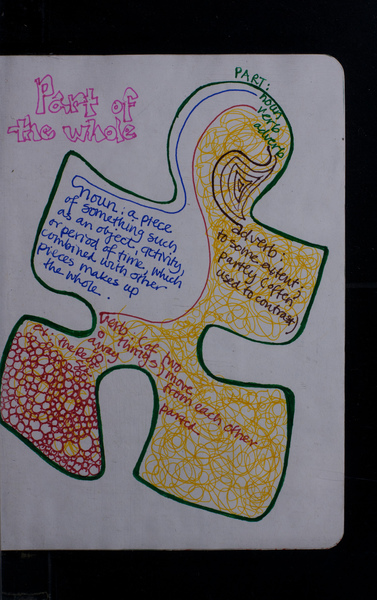 Part of
the whole
PART:
noun
verb
adverb
noun: a piece
of something such
as an object, activity,
or period of time which
combined with other
pieces makes up
the whole.
adverb:
to some extent;
partly (often
used to contrast)
verb: (of two
things) move
away from each other
ex: the lips
parted.